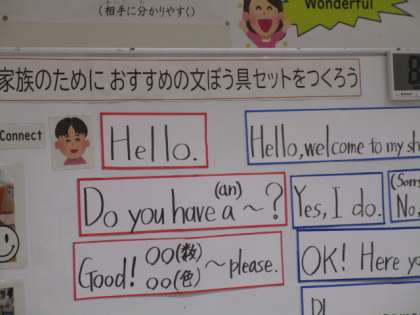 (相手に分かりやすく)
Wonderful
家族のために おすすめの文ぼう具セットをつくろう
8
Connect
Hello.
Hello, welcome to my sh
Do you have a (an) ~?
Yes, I do.
(Sorry
No,
Good! ○○(数) ○○(色) ~please.
OK! Here yo